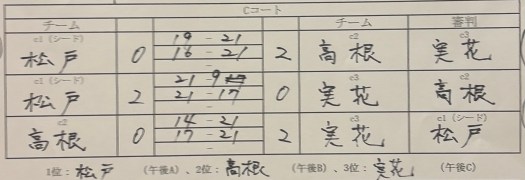 Cコート
チーム チーム 審判
c1 (シード) 19 - 21 c2 c3
松戸 0 16 - 21 2 高根 実花
-
c1 (シード) 21 - 9 c3 c2
松戸 2 21 - 17 0 実花 高根
-
c2 14 - 21 c3 c1 (シード)
高根 0 17 - 21 2 実花 松戸
-
1位：松戸 (午後A)、2位：高根 (午後B)、3位：実花 (午後C)